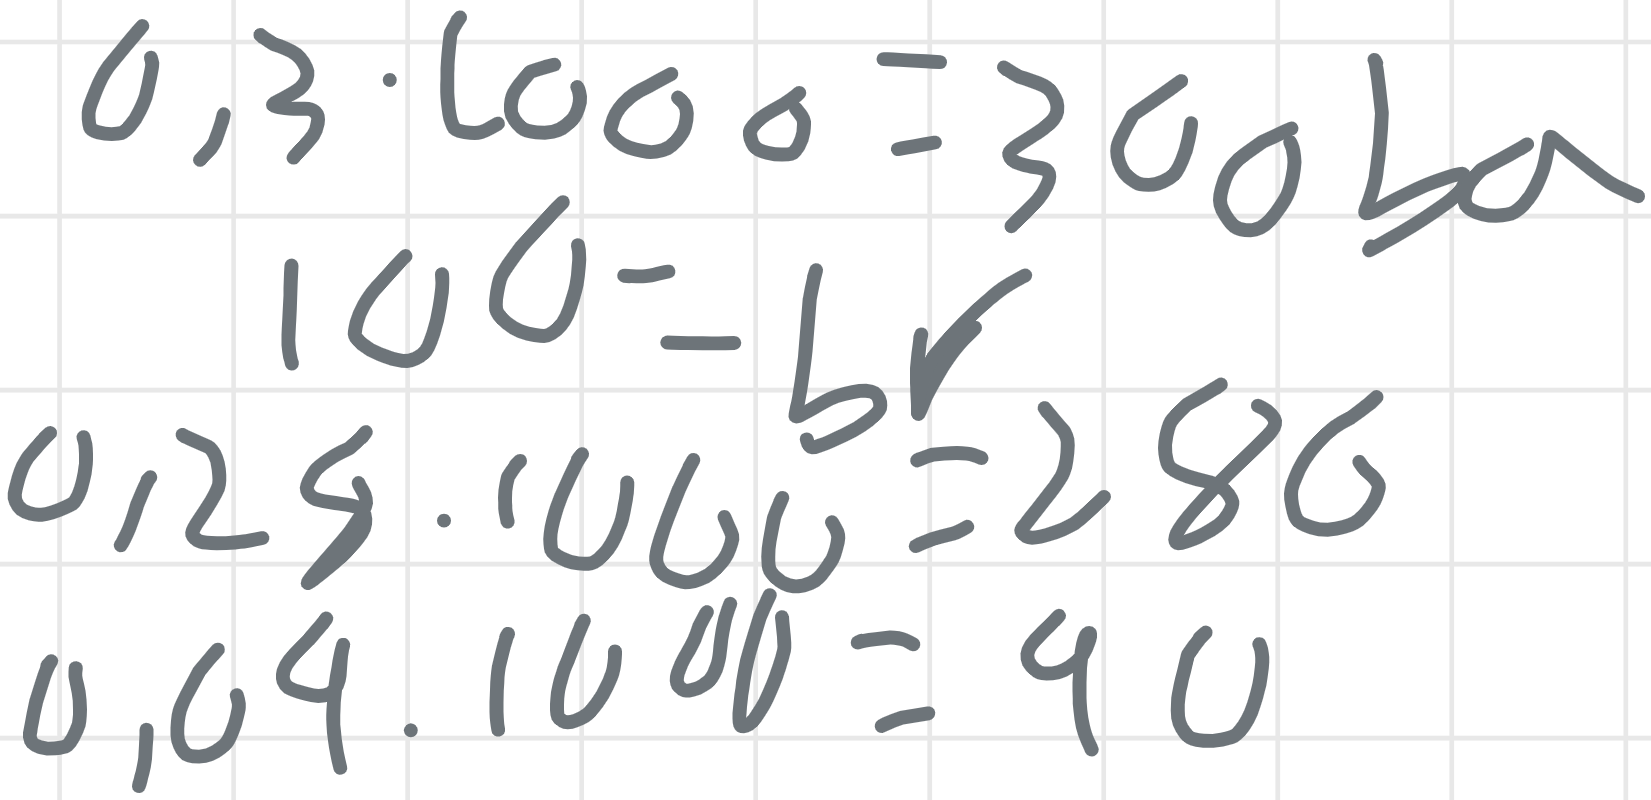 0,3·1000=300ba
100= br
0,28·1000=280
0,09·1000=90